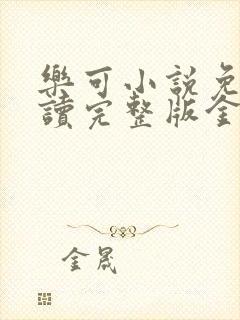 樂可小說免
讀完整版全
金晟